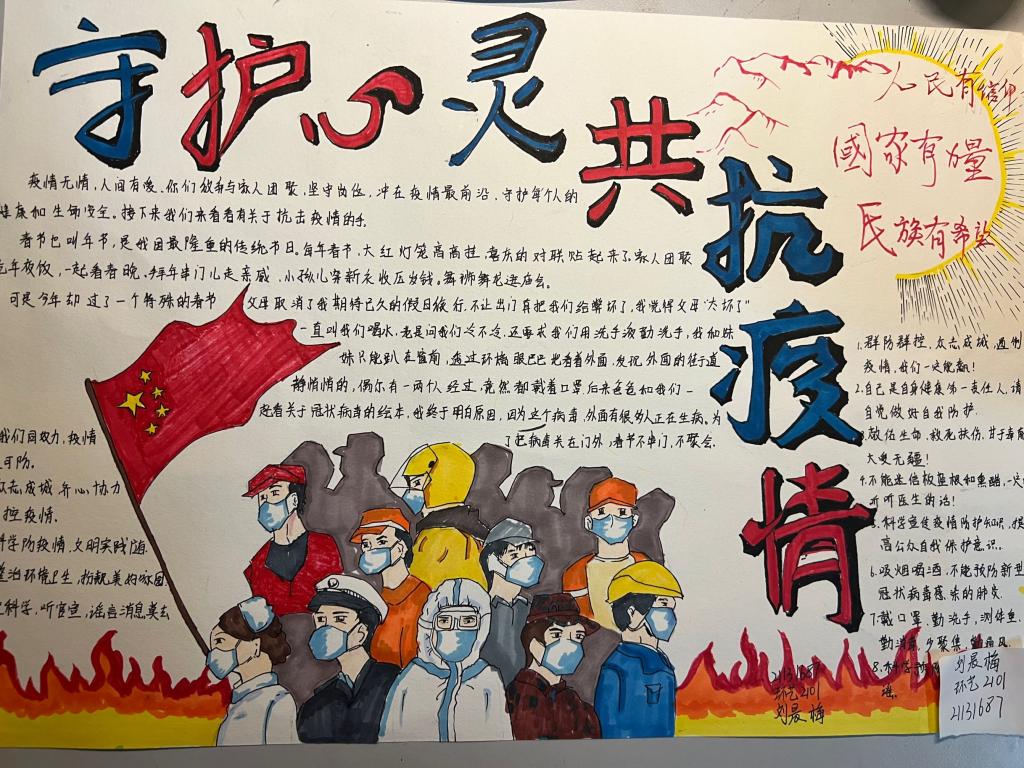 守护心灵
共抗疫情
人民有信仰
國家有力量
民族有希望
疫情无情,人间有爱,你们放弃与家人团聚,坚守岗位,冲在疫情最前沿,守护每个人的
健康和生命安全。接下来我们来看看有关于抗击疫情的手
春节也叫年节,是我国最隆重的传统节日。每年春节,大红灯笼高高挂,喜庆的对联贴起来了,家人团聚
吃年夜饭,一起看春晚。拜年串门儿走亲戚,小孩儿穿新衣收压岁钱。舞狮舞龙逛庙会。
可是今年却过了一个特殊的春节 父母取消了我期待已久的假日旅行,不让出门真把我们给憋坏了,我觉得父母“太坏了”
一直叫我们喝水,老是问我们冷不冷,还要求我们用洗手液勤洗手,我和妹
妹只能趴在窗前,透过玻璃眼巴巴地看着外面,发现外面的街道
静悄悄的,偶尔有一两个人经过,竟然都戴着口罩后来爸爸和我们一
起看关于冠状病毒的绘本,我终于明白原因,因为这个病毒,外面有很多人正在生病。为
了把病毒关在门外,春节不串门,不聚会
我们同努力,疫情
可防。
众志成城 齐心协力
控疫情。
科学防疫情,文明实践随
整治环境卫生,扮靓美好家园
科学,听官宣,谣言消息莫去
1.群防群控,众志成城,遏制
疫情,我们一定能赢!
2.自己是自身健康第一责任人,请
自觉做好自我防护.
3.敬佑生命,救死扶伤,甘于奉献
大爱无疆!
4.不能迷信板蓝根和熏醋,一定
听听医生的话!
5.科学宣传疫情防护知识,提
高公众自我保护意识。
6.吸烟喝酒,不能预防新型
冠状病毒感染的肺炎
7.戴口罩,勤洗手,测体温,
勤消毒,少聚集,勤通风
8.科学
21131687
环艺2101
刘晨梅
刘晨梅
环艺2101
21131687